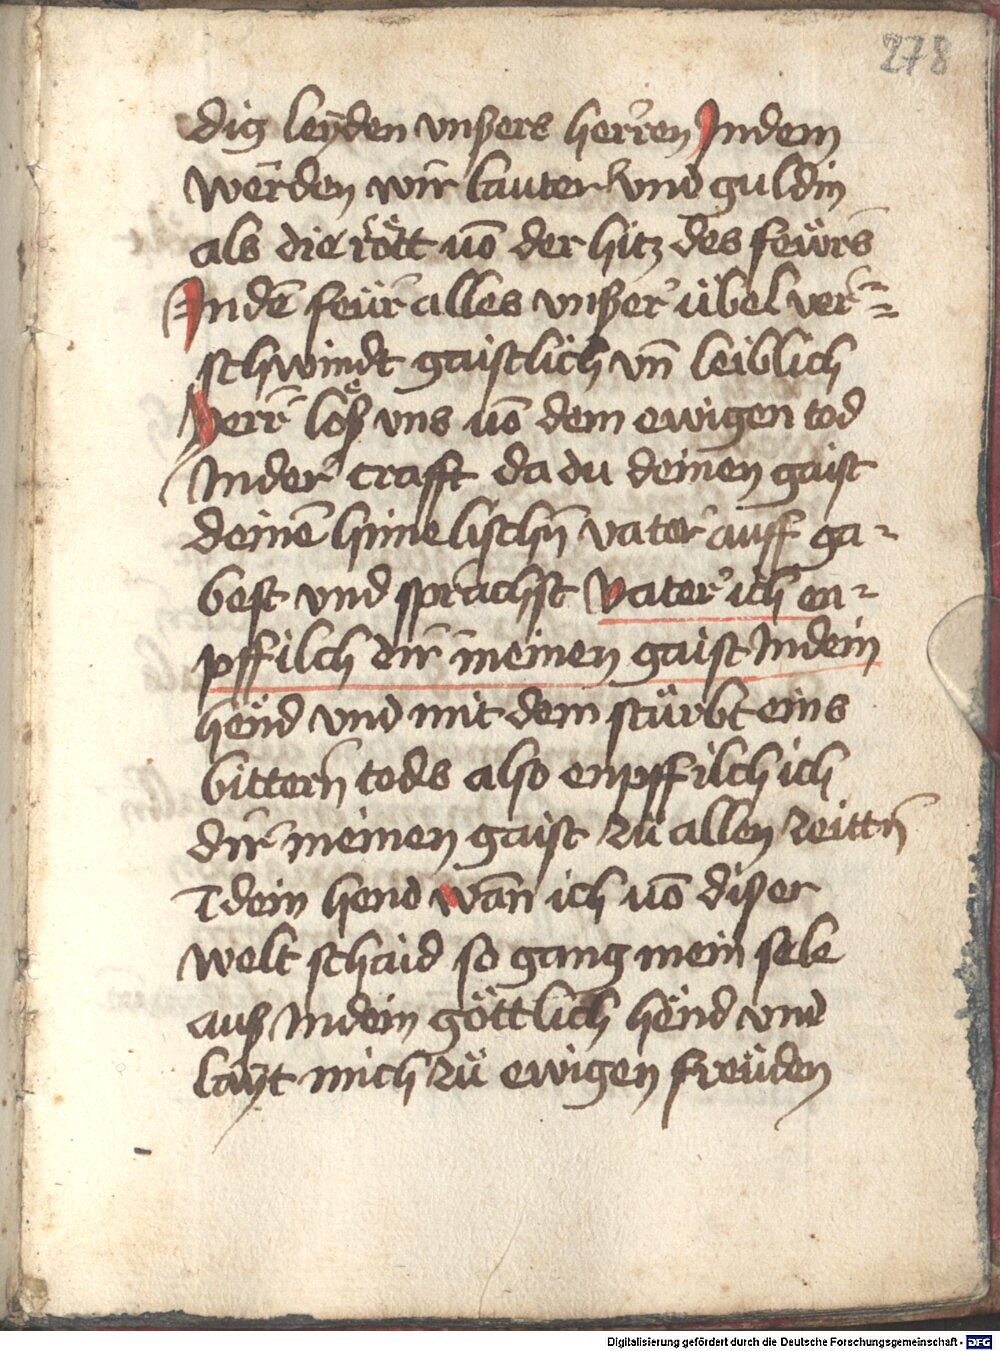 278
dig leÿden vnßers herren Indem
werden wir lauter vnd guldin
als die rött uō der hitz des feẅrs
Indē feür alles vnßer übel ver=
schwindt gaistlich vn̄ leiblich
herr löß vns uō dem ewigen tod
Inder crafft da du deinen gaist
deinē himelischn̄ vater auff ga-
best vnd sprachst vater ich en-
pffilch dir meinen gaist Indein
hend vnd mit dem stürbt eins
bittern tods also enpffilch ich
dir meinen gaist zü allen zeittn̄
I dein hend wān ich uō dißer
welt schaid so gang mein sele
auß Indein göttlich hend vnd
laÿt mich zü ewigen freüden
Digitalisierung gefördert durch die Deutsche Forschungsgemeinschaft - DFG